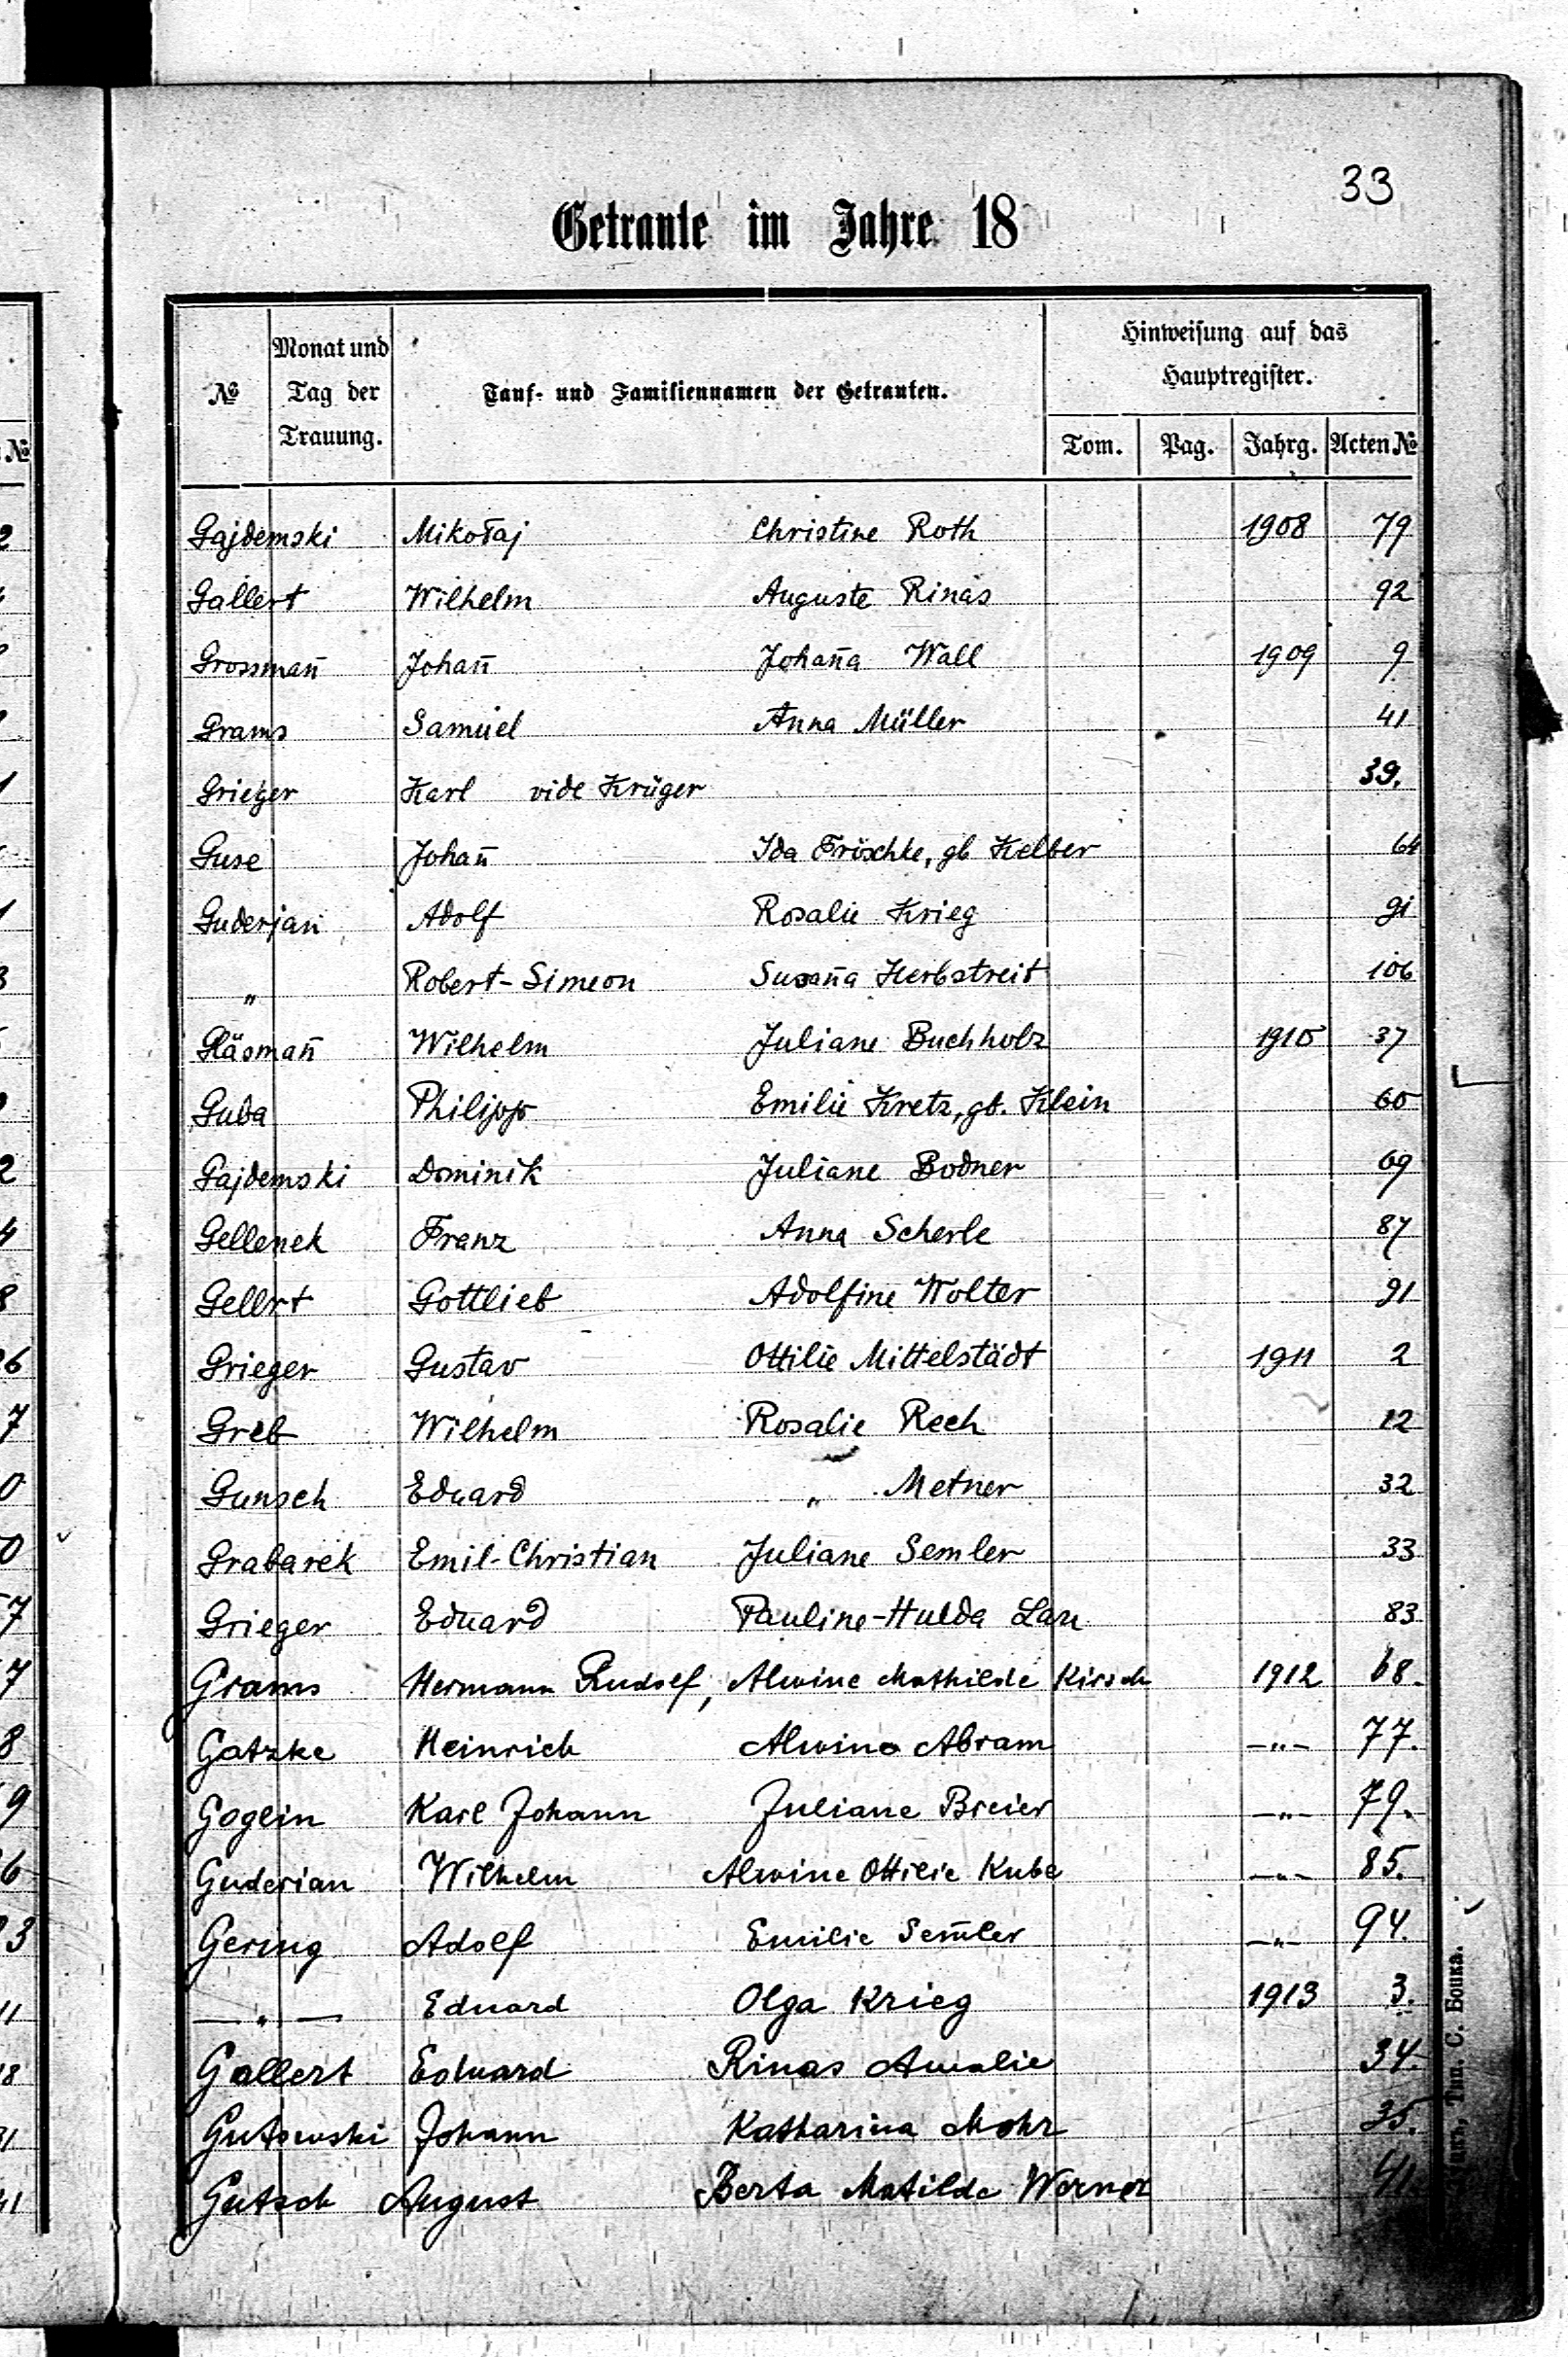 33
Getraute im Jahre 18
№ Monat und Tag der Trauung. Tauf- und Familiennamen der Getrauten. Hinweisung auf das Hauptregister.
Tom. Pag. Jahrg. Acten №
Gajdemski Mikołaj Christine Roth 1908 79
Gallert Wilhelm Auguste Rinas 92
Grossman̄ Johan̄ Johan̄a Wall 1909 9
Grams Samuel Anna Müller 41
Grieger Karl vide Krüger 39.
Guse Johan̄ Ida Fröschke, gb Kelber 64
Guderjan Adolf Rosalie Krieg 91
„ Robert-Simeon Susan̄a Herbstreit 106
Gläsman̄ Wilhelm Juliane Buchholz 1910 37
Guda Philipp Emilie Kretz, gb. Klein 60
Gajdemski Dominik Juliane Bodner 69
Gellenek Franz Anna Scherle 87
Gellrt Gottlieb Adolfine Wolter 91
Grieger Gustav Ottilie Mittelstädt 1911 2
Greb Wilhelm Rosalie Rech 12
Gunsch Eduard „ Metner 32
Grabarek Emil-Christian Juliane Semler 33
Grieger Eduard Pauline-Hulda Lau 83
Grams Hermann Rudolf, Alwine Mathilde Kirsch 1912 68.
Gatzke Heinrich Alwine Abram —„— 77.
Goglin Karl Johann Juliane Breier —„— 79.
Guderian Wilhelm Alwine Ottilie Kube —„— 85.
Gering Adolf Emilie Sem̄ler —„— 94.
—„— Eduard Olga Krieg 1913 3.
Gallert Eduard Rinas Amalie 34.
Gutowski Johann Katharina Mohr 35.
Gutsch August Berta Matilde Werner 41.
Тип. С. Бойка.